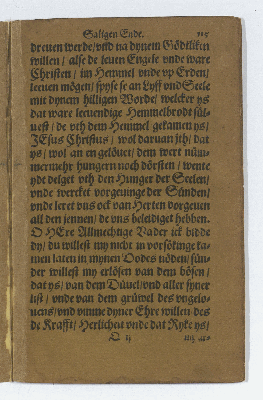 Saligen Ende.
dreuen werde/vnd na dynem Gödtliken
willen / alse de leuen Engele vnde ware
Christen / im Hemmel vnde vp Erden /
leuen mögen / spyse se an Lyff vnd Seele
mit dynem hilligen Worde / welcker ys
dat ware leuendige Hemmelbrodt sül-
uest / de vth dem Hemmel gekamen ys /
JEsus Christus / wol daruan jth / dat
ys / wol an en gelöuet / dem wert nüm-
mermehr hungern noch dörsten / wente
ydt delget vth den Hunger der Seelen /
vnde wercket vorgeuinge der Sünden /
vnde leret vns ock van Herten vorgeuen
all den jennen / de vns beleidiget hebben.
O HEre Allmechtige Vader ick bidde
dy / du willest my nicht in vorsökinge ka-
men laten in mynen Dodes nöden / sün-
der willest my erlösen van dem bösen /
dat ys / van dem Düuel / vnd aller syner
list / vnde van dem grüwel des vngelo-
uens / vnd vmme dyner Ehre willen des
de Krafft / Herlicheit vnde dat Ryke ys /
O ij